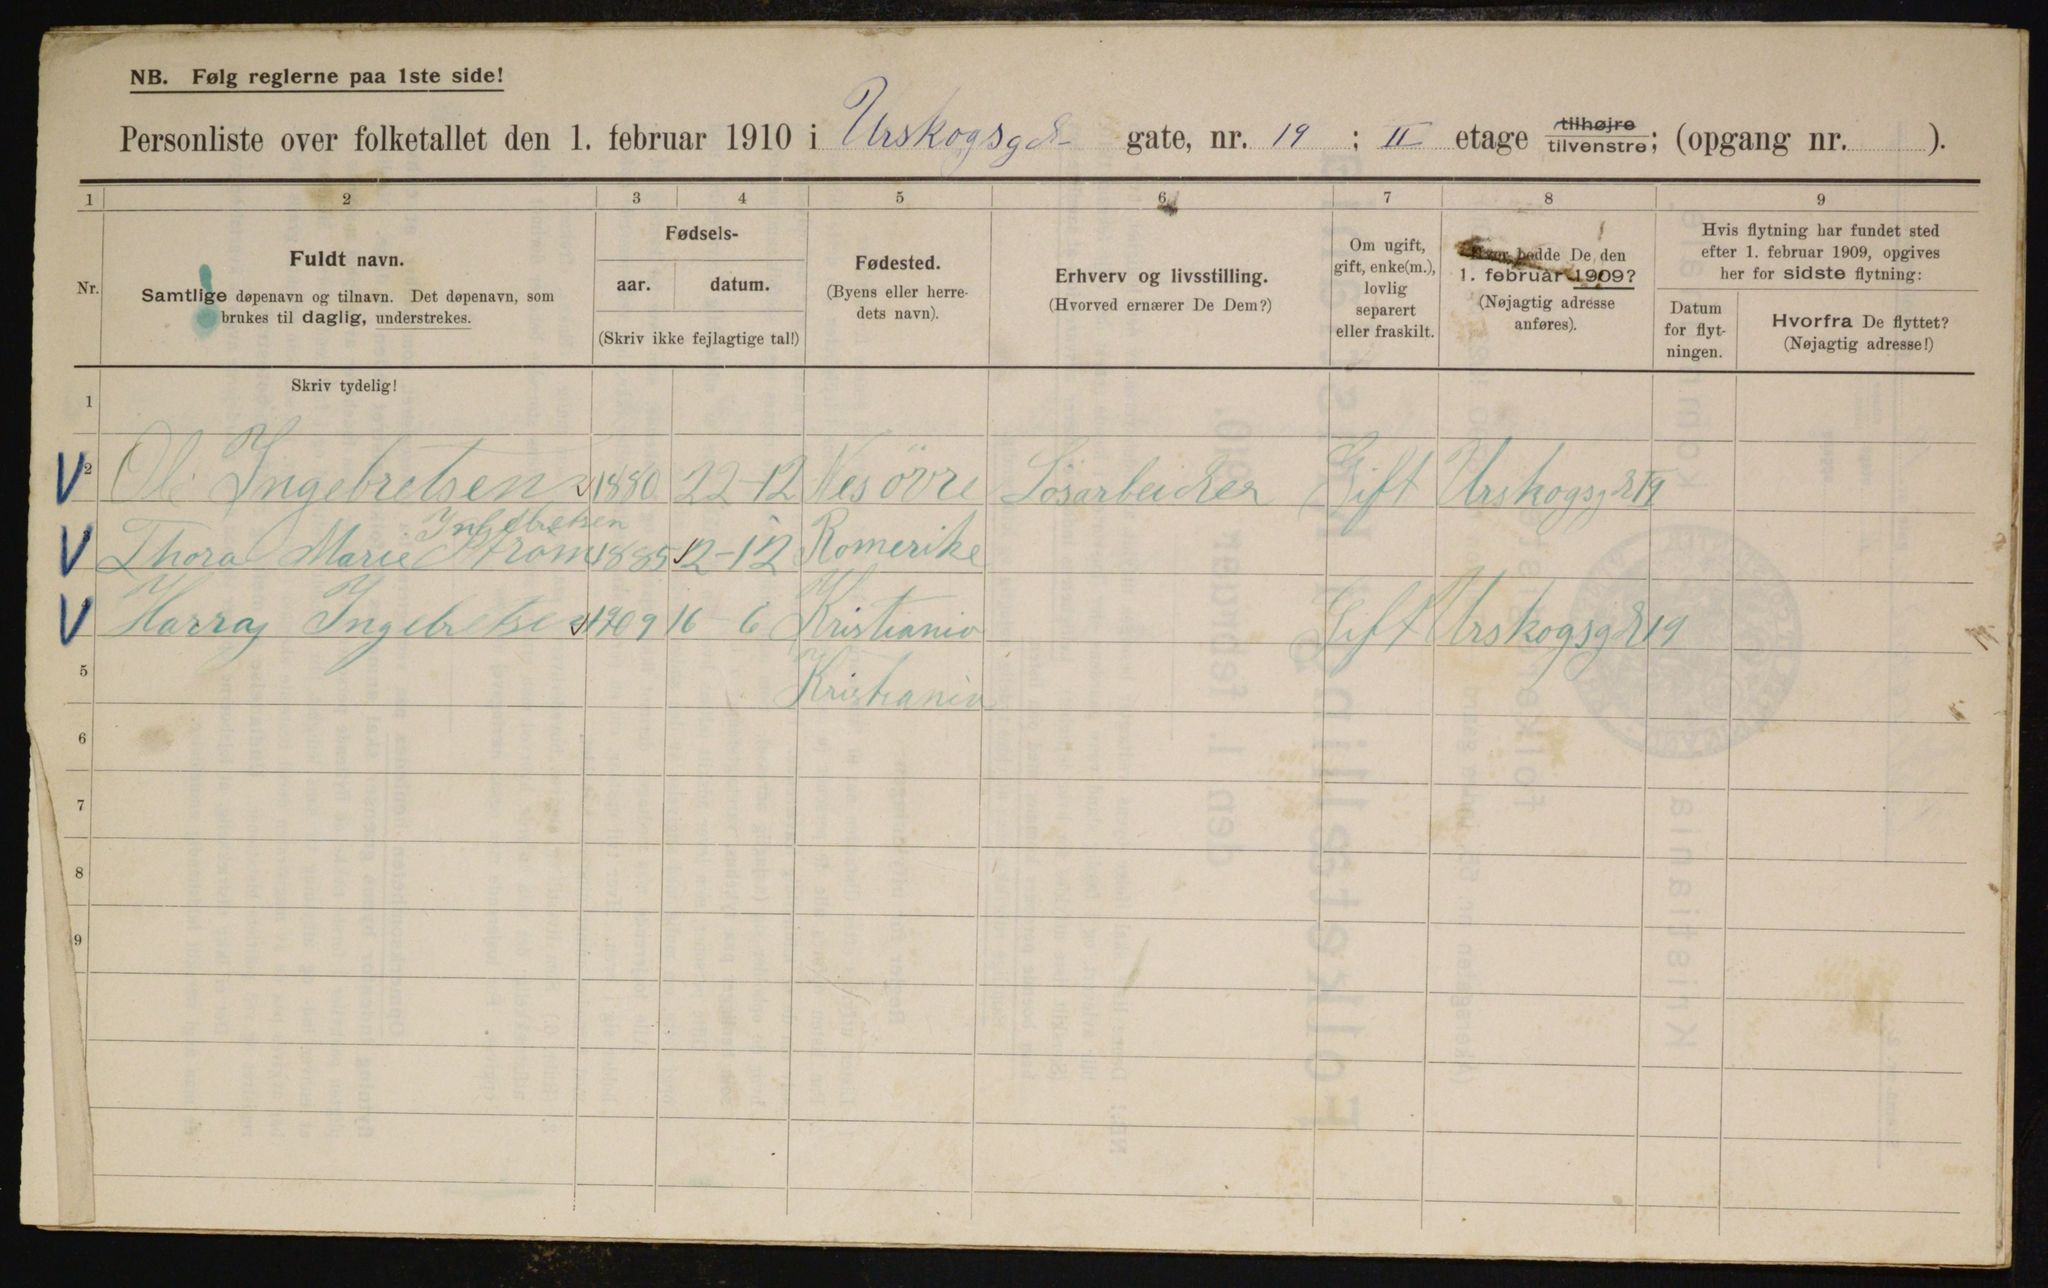 NB. Følg reglerne paa 1ste side!
Personliste over folketallet den 1. februar 1910 i Urskogsgd gate, nr. 19 ; II etage tilhøjre tilvenstre; (opgang nr. ).
1 2 3 4 5 6 7 8 9
Nr.
Fuldt navn.
Samtlige døpenavn og tilnavn. Det døpenavn, som
brukes til daglig, understrekes.
Fødsels-
aar. datum.
(Skriv ikke fejlagtige tal!)
Fødested.
(Byens eller herre-
dets navn).
Erhverv og livsstilling.
(Hvorved ernærer De Dem?)
Om ugift,
gift, enke(m.),
lovlig
separert
eller fraskilt.
Hvor bodde De den
1. februar 1909?
(Nøjagtig adresse
anføres).
Hvis flytning har fundet sted
efter 1. februar 1909, opgives
her for sidste flytning:
Datum
for flyt-
ningen.
Hvorfra De flyttet?
(Nøjagtig adresse!)
Skriv tydelig!
1
2 Ole Ingebretsen 1880 22-12 Nes övre Lösarbeider Gift Urskogsgd 19
Ingebretsen
Thora Marie Strøm 1885 12-12 Romerike
Harray Ingebretsen 1909 16 6 Kristiania Gift Urskogsgd 19
5 Kristiania
6
7
8
9